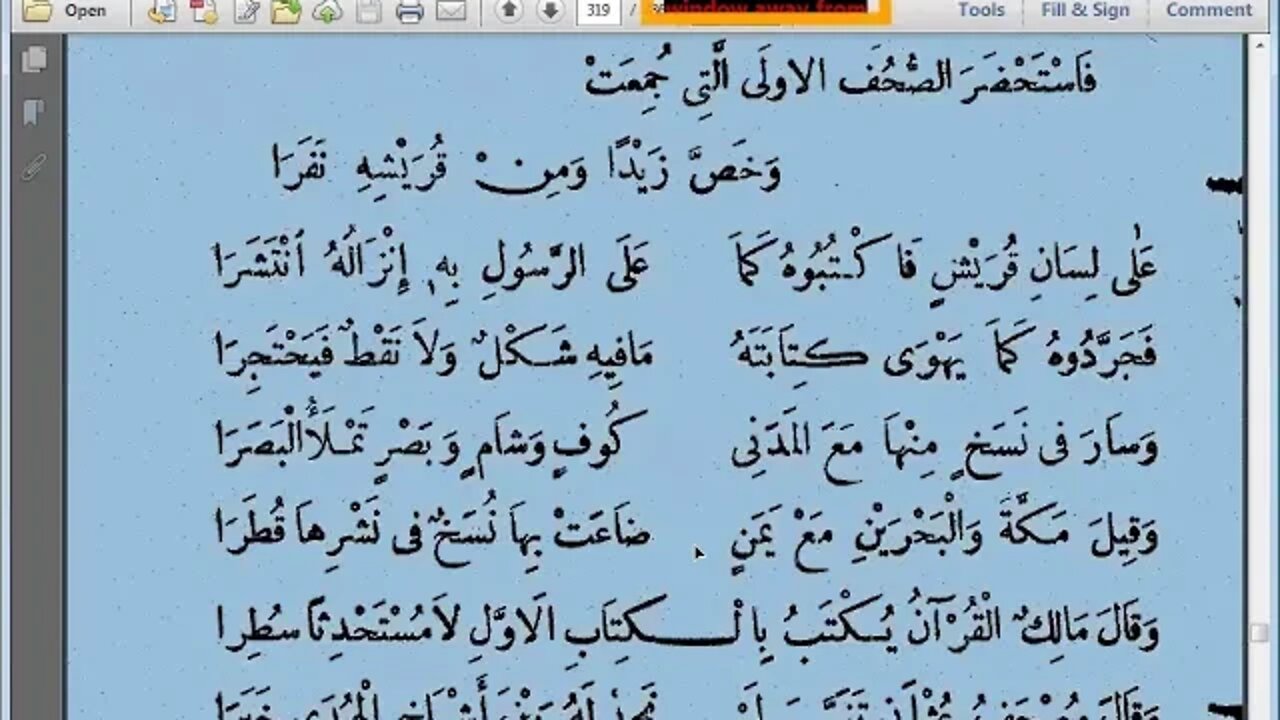 Open 319 / window away from Tools Fill & Sign Comment
فَاسْتَحْضَرَ الصُّحُفَ الاولَى الَّتِى جُمِعَتْ
وَخَصَّ زَيْدًا وَمِنْ قُرَيْشِهِ نَفَرَا
عَلَى لِسَانِ قُرَيْشٍ فَاكْتُبُوهُ كَمَا عَلَى الرَّسُولِ بِهِ إِنْزَالُهُ انْتَشَرَا
فَجَرَّدُوهُ كَمَا يَهْوَى كِتَابَتَهُ مَافِيهِ شَكْلٌ وَلاَ نَقْطٌ فَيَحْتَجِرَا
وَسَارَ فى نَسَخٍ مِنْهَا مَعَ الْمَدَنِى كُوفٍ وَشَامٍ وَبَصْرٍ تَمْلَأُالْبَصَرَا
وَقِيلَ مَكَّةَ وَالْبَحْرَيْنِ مَعْ يَمَنٍ ضَاعَتْ بِهَا نُسَخٌ فى نَشْرِهَا قُطَرَا
وَقَالَ مَالِكٌ الْقُرْآنُ يُكْتَبُ بِالْكِتَابِ الَاوَّلِ لاَمُسْتَحْدِثًا سُطِرا